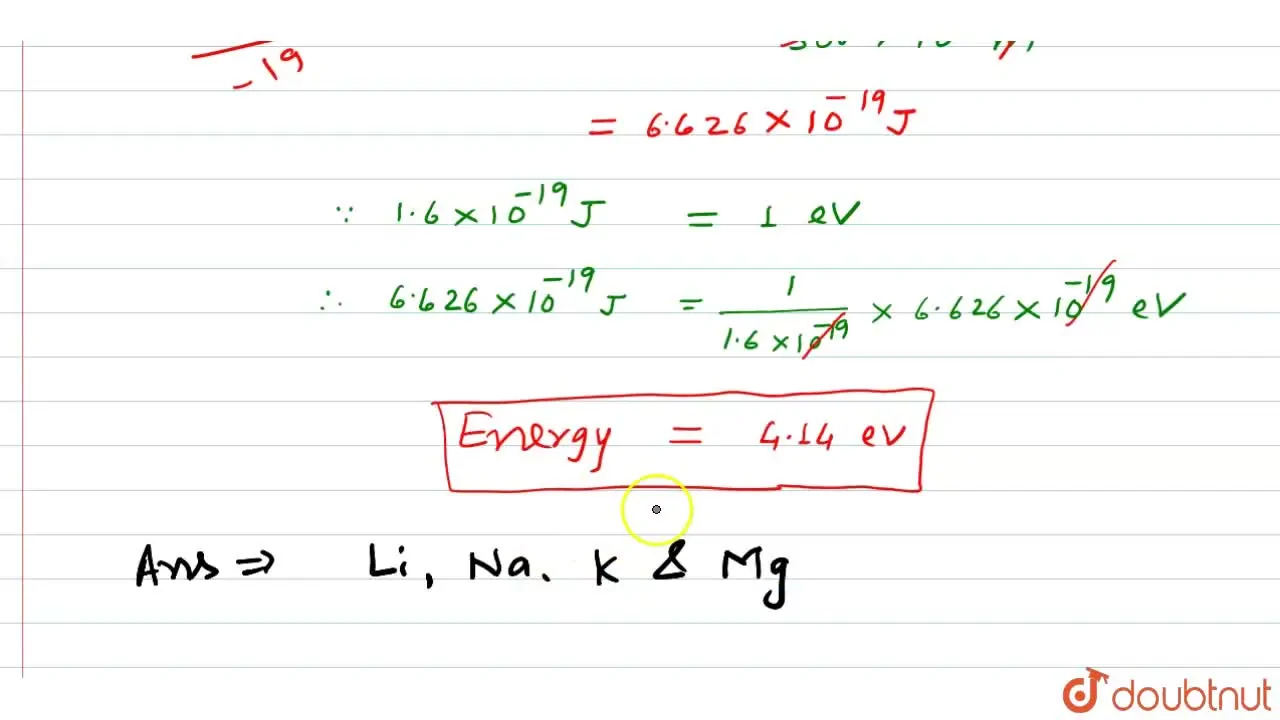 -19
= 6.626 × 10⁻¹⁹ J
∵ 1.6 × 10⁻¹⁹ J = 1 eV
∴ 6.626 × 10⁻¹⁹ J = 1/(1.6 × 10⁻¹⁹) × 6.626 × 10⁻¹⁹ eV
Energy = 4.14 ev
Ans ⇒ Li, Na. K & Mg
doubtnut